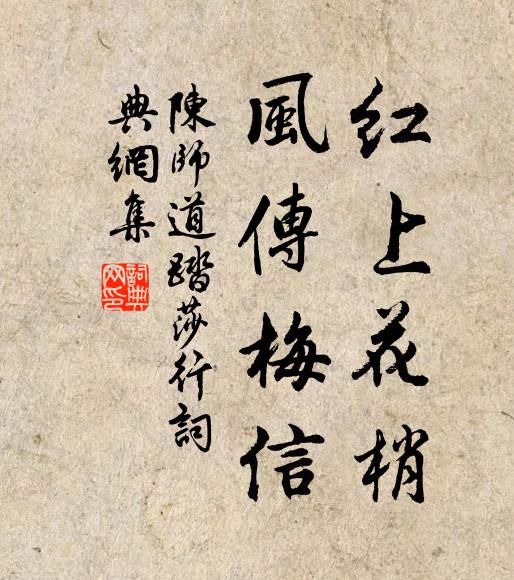 红上花梢
風傳梅信
陳師道踏莎行詞
典網集
詞典網印